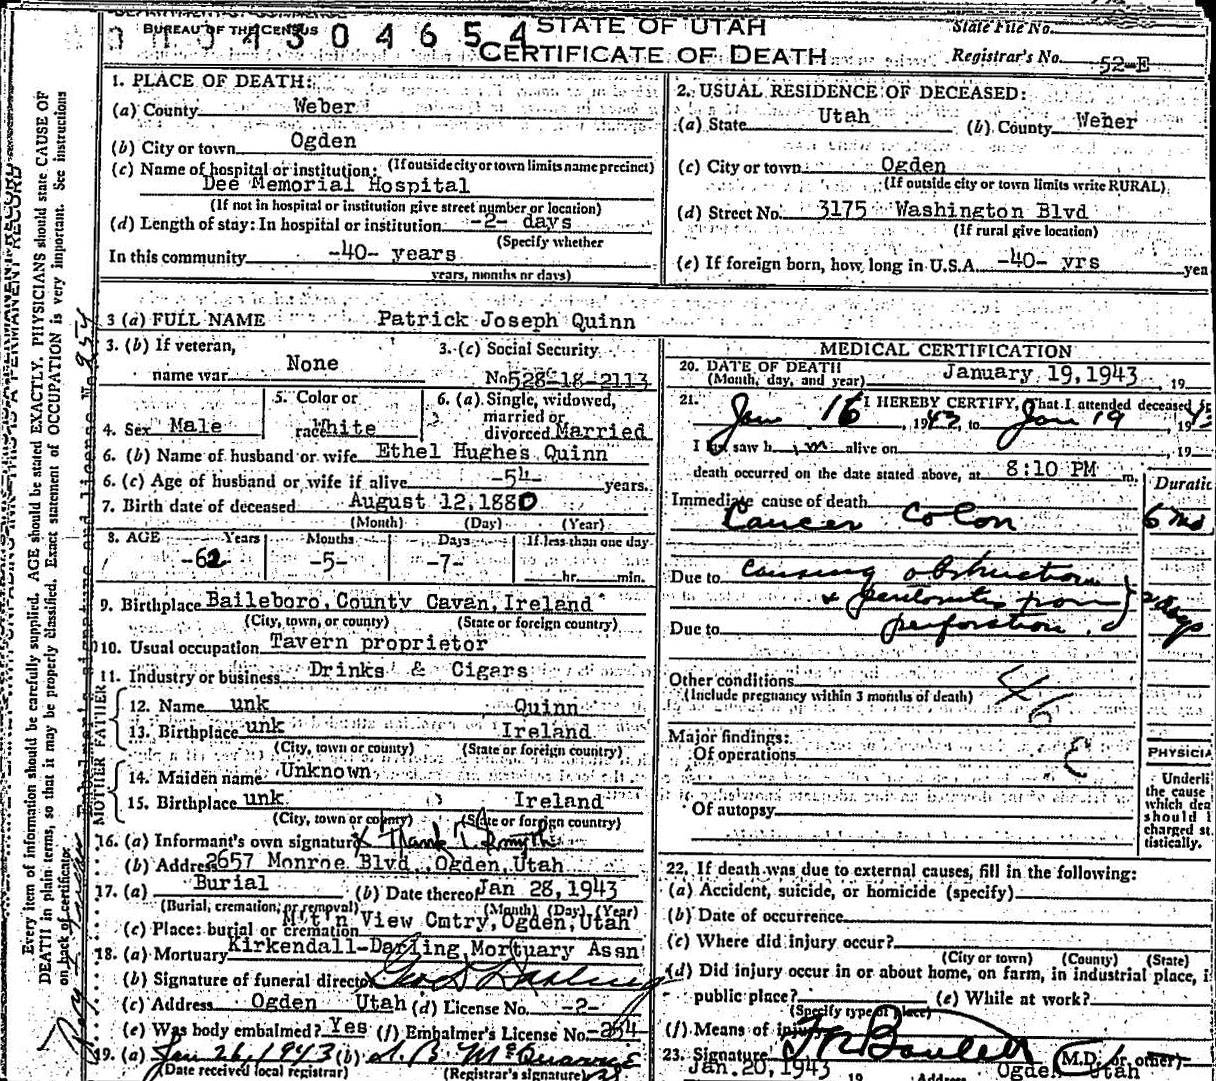 BUREAU OF THE CENSUS
04304654
STATE OF UTAH
CERTIFICATE OF DEATH
State File No.
Registrar's No. 52-E
1. PLACE OF DEATH:
(a) County Weber
(b) City or town Ogden
(If outside city or town limits name precinct)
(c) Name of hospital or institution:
Dee Memorial Hospital
(If not in hospital or institution give street number or location)
(d) Length of stay: In hospital or institution -2- days
(Specify whether
In this community -40- years
years, months or days)
2. USUAL RESIDENCE OF DECEASED:
(a) State Utah (b) County Weber
(c) City or town Ogden
(If outside city or town limits write RURAL)
(d) Street No. 3175 Washington Blvd
(If rural give location)
(e) If foreign born, how long in U.S.A. -40- yrs yea
3 (a) FULL NAME Patrick Joseph Quinn
3. (b) If veteran,
name war None
3. (c) Social Security
No. 528-18-2113
4. Sex Male
5. Color or
race White
6. (a) Single, widowed,
married or
divorced Married
6. (b) Name of husband or wife Ethel Hughes Quinn
6. (c) Age of husband or wife if alive -54- years.
7. Birth date of deceased August 12, 1880
(Month) (Day) (Year)
8. AGE Years Months Days If less than one day
-62 -5- -7- hr. min.
9. Birthplace Baileboro, County Cavan, Ireland
(City, town, or county) (State or foreign country)
10. Usual occupation Tavern proprietor
11. Industry or business Drinks & Cigars
FATHER
12. Name unk Quinn
13. Birthplace unk Ireland
(City, town or county) (State or foreign country)
MOTHER
14. Maiden name Unknown
15. Birthplace unk Ireland
(City, town or county) (State or foreign country)
16. (a) Informant's own signature
(b) Address 2657 Monroe Blvd, Ogden, Utah
17. (a) Burial (b) Date thereof Jan 28, 1943
(Burial, cremation, or removal) (Month) (Day) (Year)
(c) Place: burial or cremation Mt'n View Cmtry, Ogden, Utah
18. (a) Mortuary Kirkendall-Darling Mortuary Assn
(b) Signature of funeral director Geo S Darling
(c) Address Ogden Utah (d) License No. -2-
(e) Was body embalmed? Yes (f) Embalmer's License No. -254
19. (a) Jan 26, 1943 (b)
(Date received local registrar) (Registrar's signature)
MEDICAL CERTIFICATION
20. DATE OF DEATH
(Month, day, and year) January 19, 1943, 19
21. I HEREBY CERTIFY, That I attended deceased
Jan 16, 1943, to Jan 19, 1943
I last saw him alive on , 19
death occurred on the date stated above, at 8:10 PM m.
Duratio
Immediate cause of death
Cancer Colon 6 mo
Due to causing obstruction
& peritonitis from 2 days
Due to perforation.
Other conditions
(Include pregnancy within 3 months of death)
46
Major findings:
Of operations
Of autopsy
PHYSICIA
Underli
the cause
which dea
should b
charged st
tistically.
22. If death was due to external causes, fill in the following:
(a) Accident, suicide, or homicide (specify)
(b) Date of occurrence
(c) Where did injury occur?
(City or town) (County) (State)
(d) Did injury occur in or about home, on farm, in industrial place, i
public place? (e) While at work?
(Specify type of place)
(f) Means of injury
23. Signature (M.D. or other)
Jan. 20, 1943 19 Address Ogden Utah
Every item of information should be carefully supplied. AGE should be stated EXACTLY. PHYSICIANS should state CAUSE OF
DEATH in plain terms, so that it may be properly classified. Exact statement of OCCUPATION is very important. See instructions
on back of certificate.